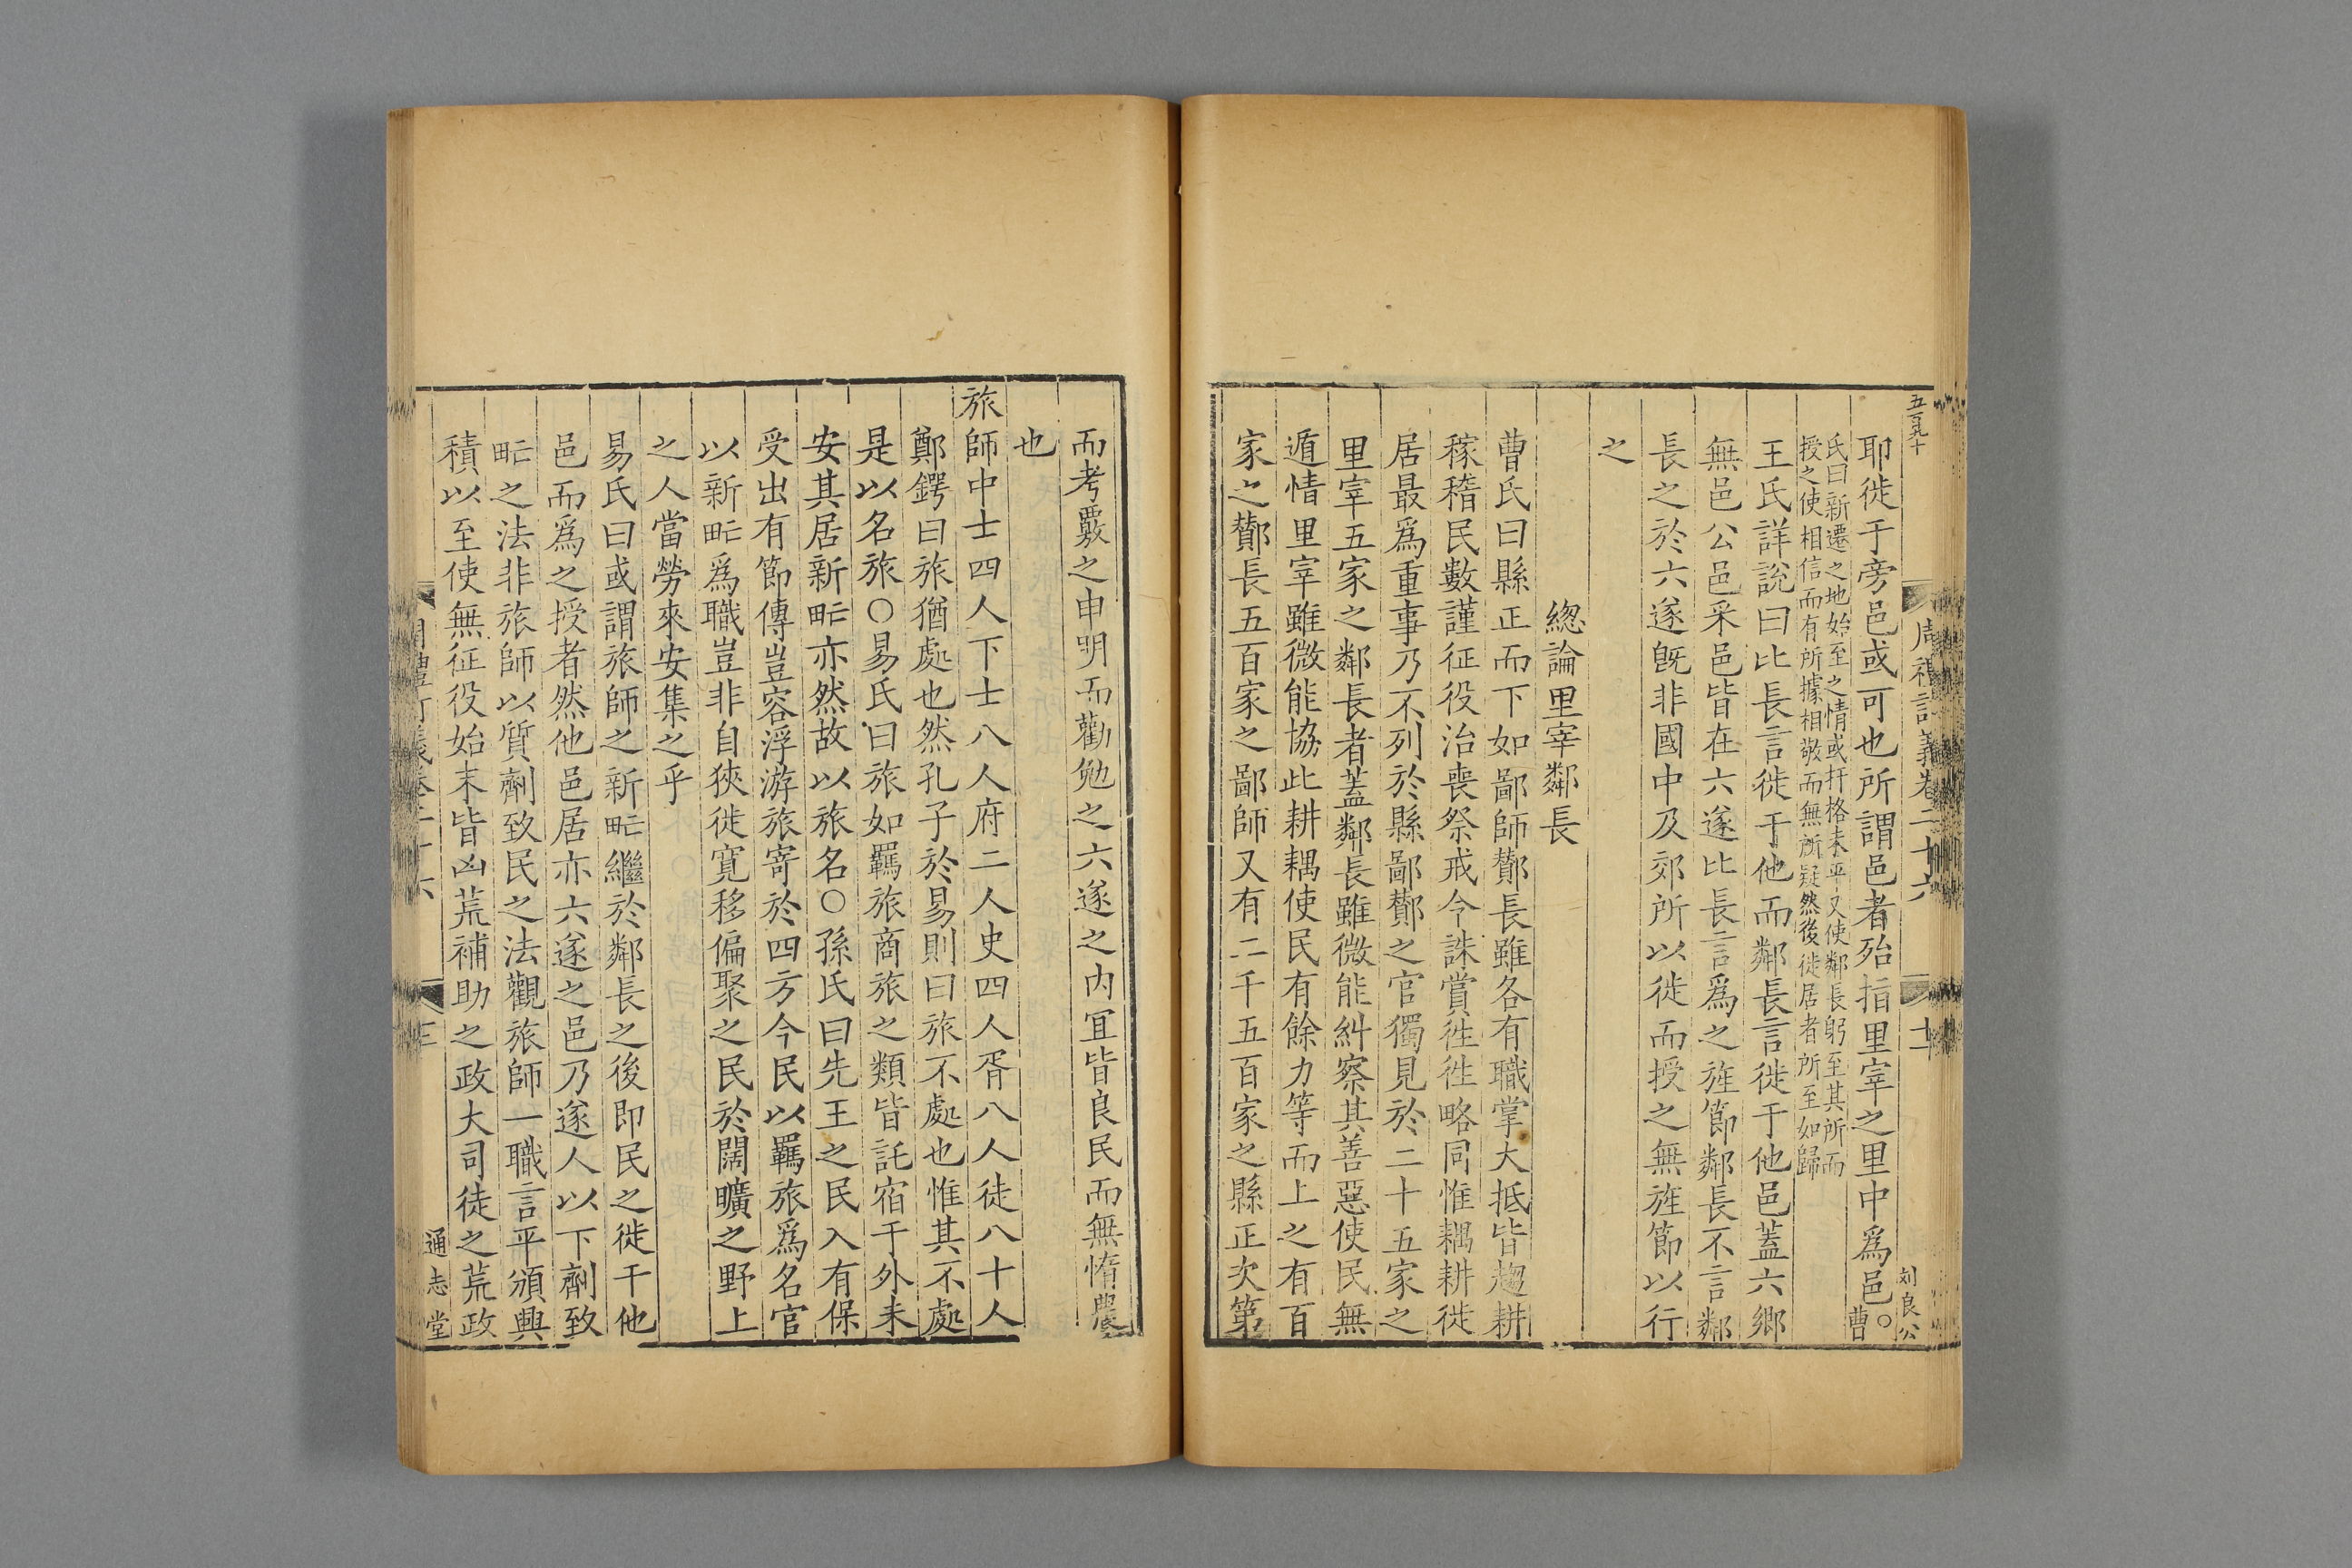 五百九十
周禮訂義卷二十六
十二
刘良公
耶徙于旁邑或可也所謂邑者殆指里宰之里中爲邑○曹
氏曰新遷之地始至之情或扞格未平又使鄰長躬至其所而
授之使相信而有所據相敬而無所疑然後徙居者所至如歸
王氏詳說曰比長言徙于他而鄰長言徙于他邑蓋六鄉
無邑公邑采邑皆在六遂比長言爲之旌節鄰長不言鄰
長之於六遂旣非國中及郊所以徙而授之無旌節以行
之
緫論里宰鄰長
曹氏曰縣正而下如鄙師酇長雖各有職掌大抵皆趨耕
稼稽民數謹征役治喪祭戒令誅賞徃徃略同惟耦耕徙
居最爲重事乃不列於縣鄙酇之官獨見於二十五家之
里宰五家之鄰長者蓋鄰長雖微能糾察其善惡使民無
遁情里宰雖微能協此耕耦使民有餘力等而上之有百
家之酇長五百家之鄙師又有二千五百家之縣正次第
而考覈之申明而勸勉之六遂之内冝皆良民而無惰農
也
旅師中士四人下士八人府二人史四人胥八人徒八十人
鄭鍔曰旅猶處也然孔子於易則曰旅不處也惟其不處
是以名旅○易氏曰旅如羈旅商旅之類皆託宿于外未
安其居新甿亦然故以旅名○孫氏曰先王之民入有保
受出有節傳豈容浮游旅寄於四方今民以羈旅爲名官
以新甿爲職豈非自狹徙寛移偏聚之民於闊曠之野上
之人當勞來安集之乎
易氏曰或謂旅師之新甿繼於鄰長之後即民之徙于他
邑而爲之授者然他邑居亦六遂之邑乃遂人以下劑致
甿之法非旅師以質劑致民之法觀旅師一職言平頒興
積以至使無征役始末皆凶荒補助之政大司徒之荒政
通志堂